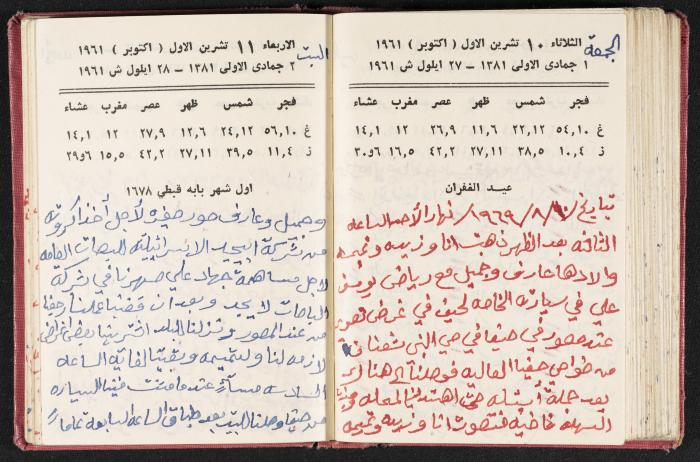 الجمعة
الثلاثاء ١٠ تشرين الاول ( اكتوبر ) ١٩٦١
١ جمادى الاولى ١٣٨١ – ٢٧ ايلول ش ١٩٦١
فجر شمس ظهر عصر مغرب عشاء
غ ٥٤,١٠ ٢٢,١٢ ١١,٦ ٢٦,٩ ١٢ ١٤,١
ز ١٠,٤ ٣٨,٥ ٢٧,١١ ٤٢,٢ ١٦,٥ ٣٠و٦
عيد الغفران
بتاريخ ١٠/٨/١٩٦٩ نهار الأحد الساعه
الثالثه بعد الظهر ذهبت انا وزينه ونميمه
والادها عارف وجميل مع رياض يوسف
علي في سيارته الخاصه لحيفا في غرض تصوير
عند مصور في حيفا في حي
من ضواحي حيفا العاليه فوصلنا هناك
بعد حملة أسئله حتى اهتدينا المحله
فتصورت انا وزينه ونميمه
السبت
الاربعاء ١١ تشرين الاول ( اكتوبر ) ١٩٦١
٢ جمادى الاولى ١٣٨١ – ٢٨ ايلول ش ١٩٦١
فجر شمس ظهر عصر مغرب عشاء
غ ٥٦,١٠ ٢٤,١٢ ١٢,٦ ٢٧,٩ ١٢ ١٤,١
ز ١١,٤ ٣٩,٥ ٢٧,١١ ٤٢,٢ ١٥,٥ ٢٩و٦
اول شهر بابه قبطي ١٦٧٨
وجميل وعارف صور صغيره لأجل أخذ كروته
من شركة ايجد الاسرائيليه للباصات العامه
لاجل مساهمة جهاد علي صهرنا في شركة
الباصات لايجد وبعد ان قضينا عملنا رجعنا
من عند المصور ونزلنا البلد اشترينا بعض اغراض
لازمه لنا ولنميمه وبقينا لغاية الساعه
السادسه مساءً عندها مشت فينا السياره
من حيفا وصلنا البيت بعد طباق الساعه السابعه تماماً